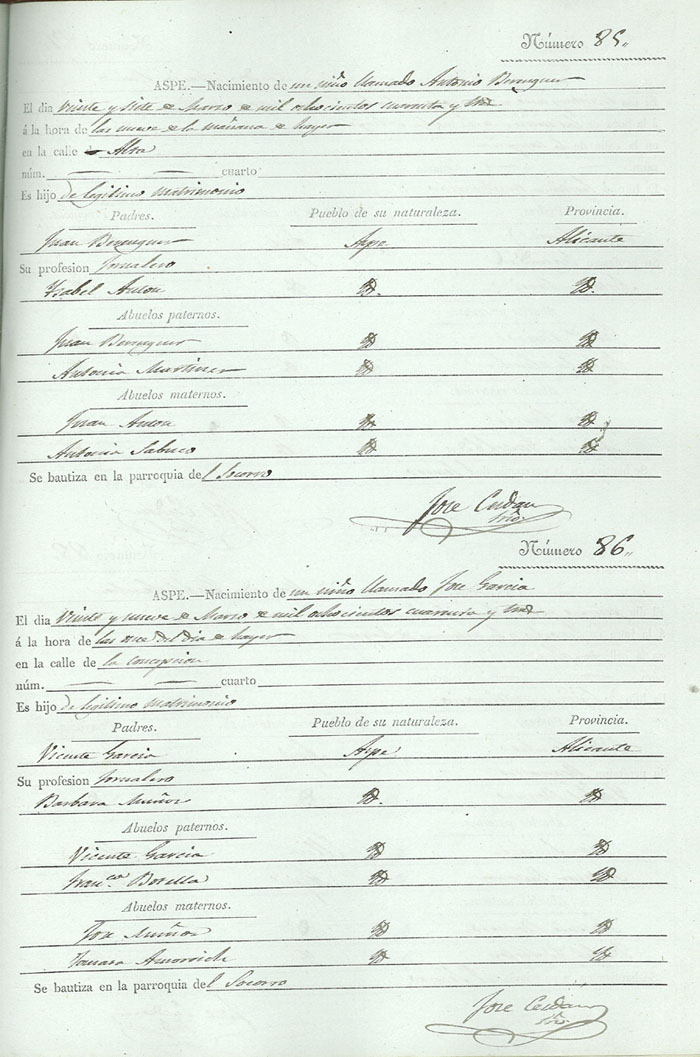 Número 85.
ASPE.—Nacimiento de un niño llamado Antonio Berenguer
El dia Veinte y siete de Marzo de mil ochocientos cuarenta y tres
á la hora de las nueve de la mañana de hayer
en la calle Alta
núm. cuarto
Es hijo de legitimo matrimonio
Padres. Pueblo de su naturaleza. Provincia.
Juan Berenguer Aspe Alicante
Su profesion Jornalero
Ysabel Anton D. D.
Abuelos paternos.
Juan Berenguer D D
Antonia Martinez D D
Abuelos maternos.
Juan Anton D D
Antonia Sabuco D D
Se bautiza en la parroquia del Socorro
Jose Cerdan
Srio
Número 86.
ASPE.—Nacimiento de un niño llamado Jose Garcia
El dia Veinte y nueve de Marzo de mil ochocientos cuarenta y tres
á la hora de las once del dia de hayer
en la calle de la Concepcion
núm. cuarto
Es hijo de legitimo matrimonio
Padres. Pueblo de su naturaleza. Provincia.
Vicente Garcia Aspe Alicante
Su profesion Jornalero
Barbara Muñoz D. D
Abuelos paternos.
Vicente Garcia D D
Fran.ca Botella D D
Abuelos maternos.
Jose Muñoz D D
D D
Se bautiza en la parroquia del Socorro
Jose Cerdán
Srio